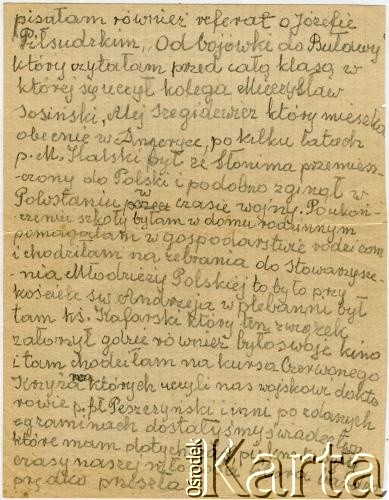 pisałam również referat o Józefie
Piłsudzkim, „Od bojówki do Buławy
który czytałam przed całą klasą w
której się uczył kolega Mieczysław
Sosiński, Alej Szegidewicz który mieszka
obecnie w Ameryce, po kilku latach
p. M. Halski był ze Słonima przemiesz-
czony do Polski i podobno zginął w
Powstaniu w czasie wojny. Po ukoń-
czeniu szkoły byłam w domu rodzinnym
pomagałam w gospodarstwie rodzicom
i chodziłam na zebrania do Stowarzysze-
nia Młodzieży Polskiej to było przy
kościele św. Andrzeja w plebanni był
tam ks. Kafarski który ten związek
założył gdzie również było swoje kino
i tam chodziłam na kursa Czerwonego
Krzyża na których uczyli nas wojskowi dokto
rowie p. pł. Peszczyński i inni po zdanych
egzaminach dostałyśmy świadectwa
które mam dotychczas
czasy naszej
prędko
Ośrodek Karta